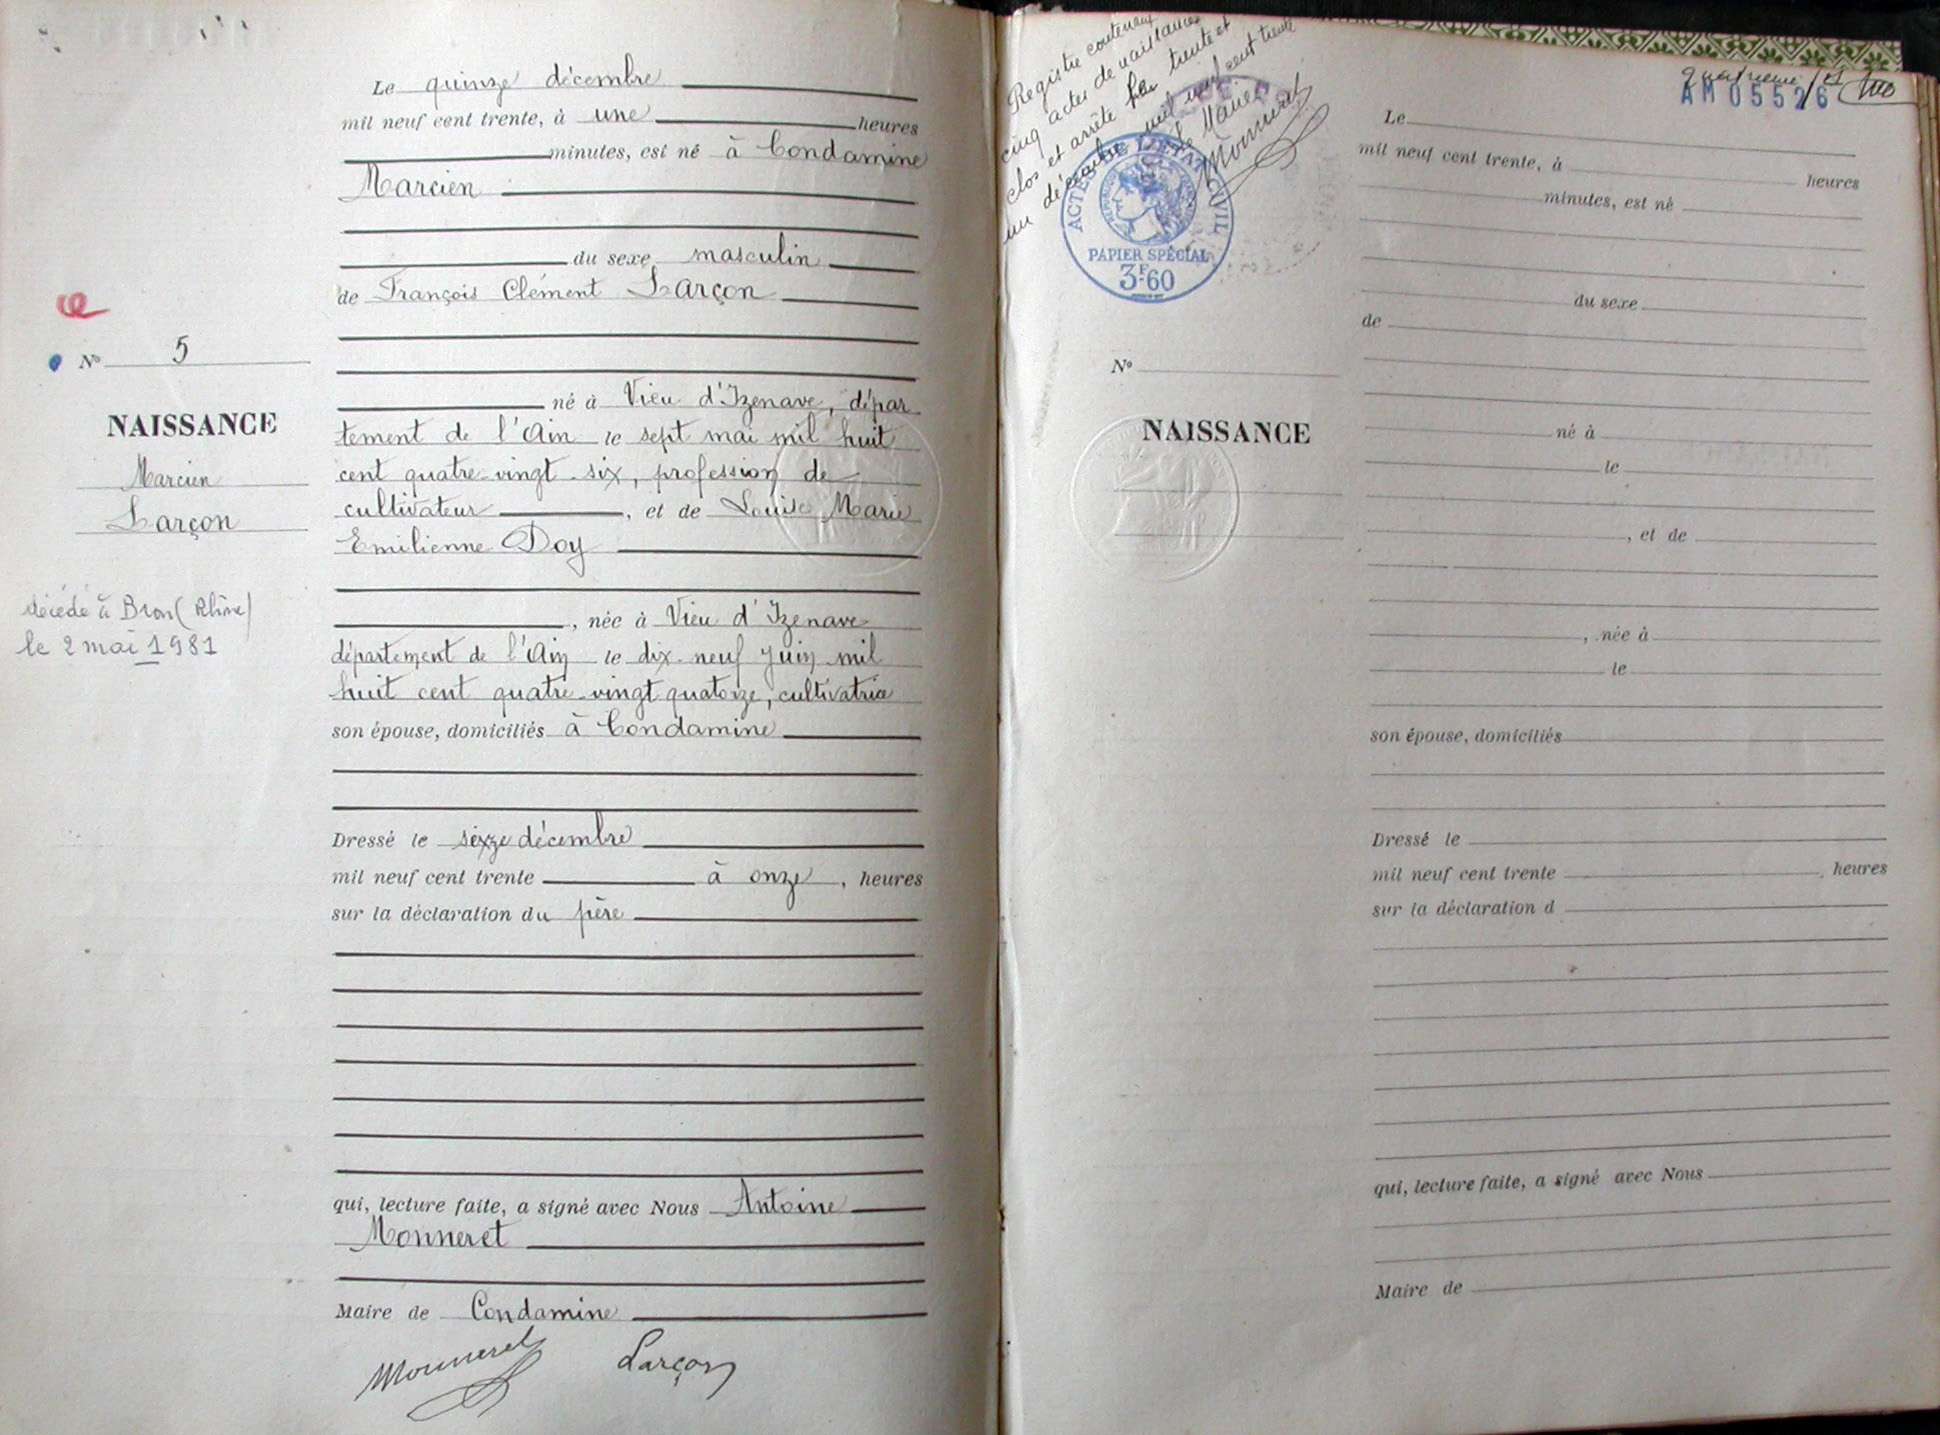 Le quinze décembre
mil neuf cent trente, à une heures
minutes, est né à Condamine
Marcien
du sexe masculin
de François Clément Larçon
N° 5
NAISSANCE
Marcien
Larçon
décédé à Bron (Rhône)
le 2 mai 1981
né à Vieu d'Izenave, dépar
tement de l'Ain le sept mai mil huit
cent quatre-vingt-six, profession de
cultivateur, et de Louise Marie
Emilienne Doy
, née à Vieu d'Izenave
département de l'Ain le dix-neuf juin mil
huit cent quatre-vingt quatorze, cultivatrice
son épouse, domiciliés à Condamine
Dressé le seize décembre
mil neuf cent trente à onze, heures
sur la déclaration du père
qui, lecture faite, a signé avec Nous Antoine
Monneret
Maire de Condamine
Monneret Larçon
Registre contenant
cinq actes de naissances
clos et arrêté le trente et
un décembre mil neuf cent trente
Le Maire
Monneret
ACTES DE L'ETAT CIVIL
PAPIER SPÉCIAL
3F.60
AM 05526
Le
mil neuf cent trente, à heures
minutes, est né
du sexe
de
N°
NAISSANCE
né à
le
, et de
, née à
le
son épouse, domiciliés
Dressé le
mil neuf cent trente , heures
sur la déclaration d
qui, lecture faite, a signé avec Nous
Maire de